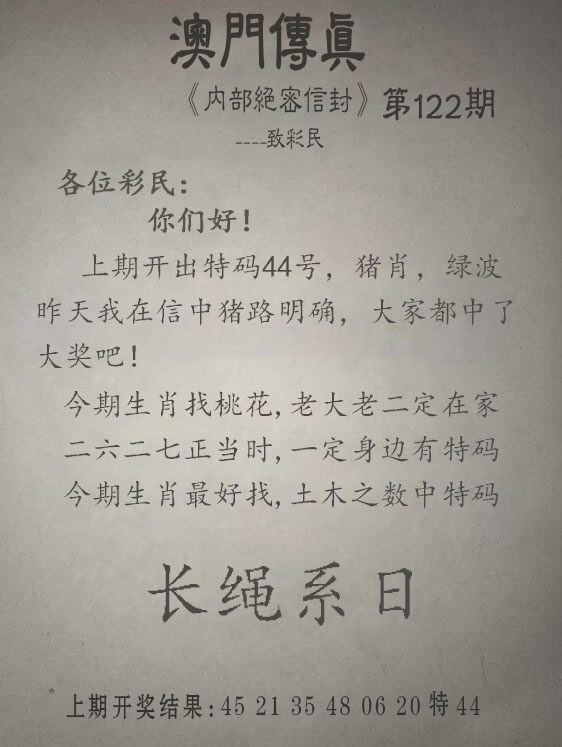 澳門傳眞
《内部絕密信封》第122期
----致彩民
各位彩民：
你们好！
上期开出特码44号，猪肖，绿波
昨天我在信中猪路明确，大家都中了
大奖吧！
今期生肖找桃花,老大老二定在家
二六二七正当时,一定身边有特码
今期生肖最好找,土木之数中特码
长绳系日
上期开奖结果:45 21 35 48 06 20特44